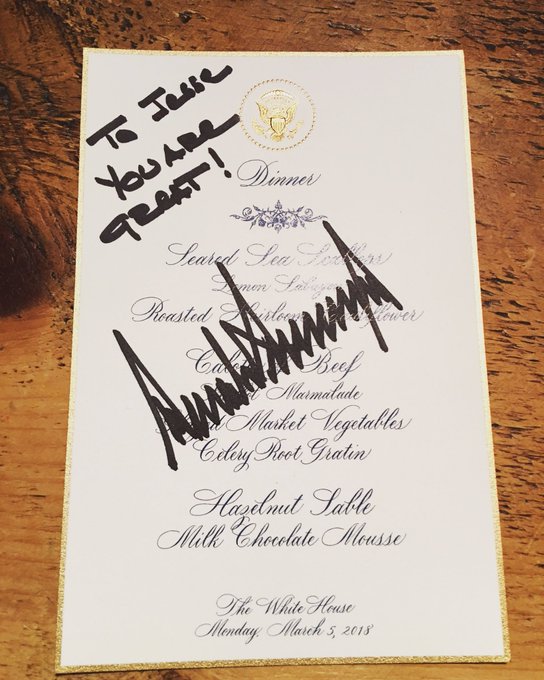 To
YOU ARE
GREAT!
Dinner
Seared Sea Scallops
Lemon Sabayon
Roasted Heirloom Cauliflower
Beef
Marmalade
Market Vegetables
Celery Root Gratin
Hazelnut Sable
Milk Chocolate Mousse
The White House
Monday, March 5, 2018